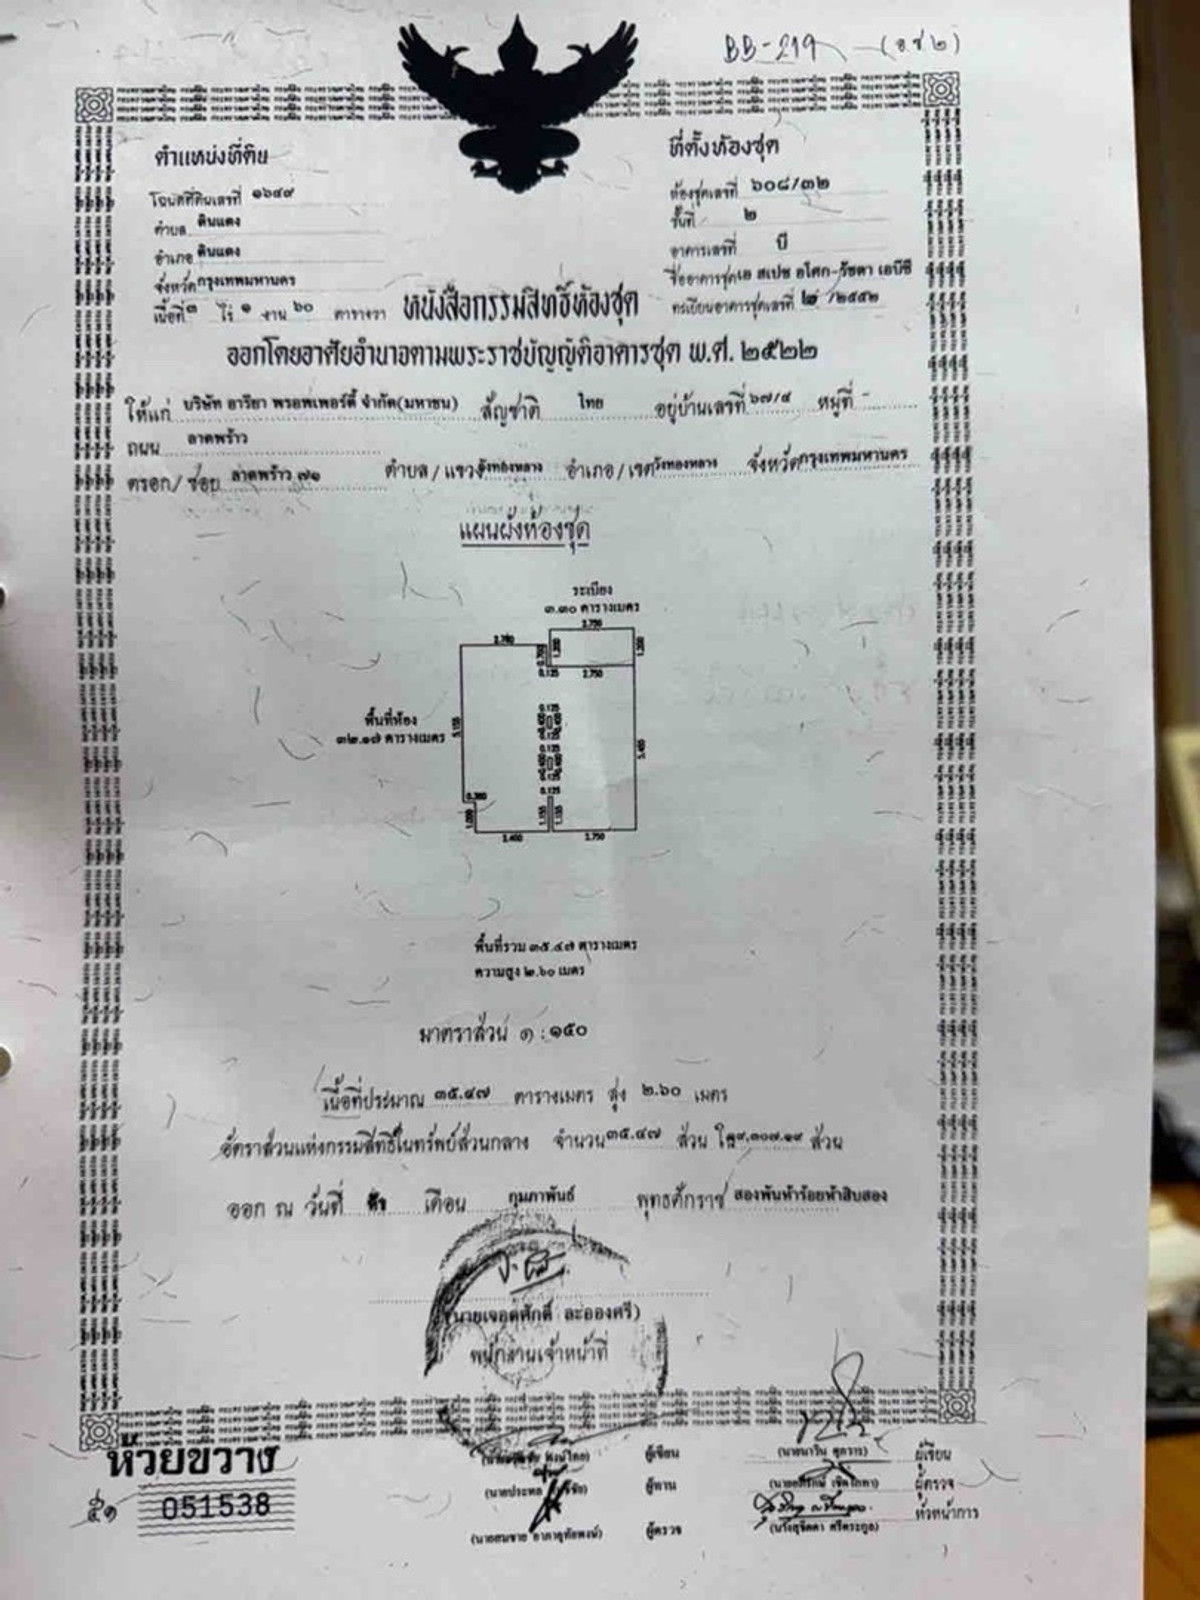 BB-219 (อ.ช ๒)
ตำแหน่งที่ดิน
ที่ตั้งห้องชุด
โฉนดที่ดินเลขที่ ๑๖๔๙
ห้องชุดเลขที่ ๖๐๘/๓๒
ตำบล ดินแดง
ชั้นที่ ๒
อำเภอ ดินแดง
อาคารเลขที่ บี
จังหวัด กรุงเทพมหานคร
ชื่ออาคารชุด เอ สเปซ อโศก-รัชดา เอบีซี
เนื้อที่ ๓ ไร่ ๑ งาน ๖๐ ตารางวา
ทะเบียนอาคารชุดเลขที่ ๒ /๒๕๕๒
หนังสือกรรมสิทธิ์ห้องชุด
ออกโดยอาศัยอำนาจตามพระราชบัญญัติอาคารชุด พ.ศ. ๒๕๒๒
ให้แก่ บริษัท อารียา พรอพเพอร์ตี้ จำกัด(มหาชน) สัญชาติ ไทย อยู่บ้านเลขที่ ๖๗/๔ หมู่ที่ -
ถนน ลาดพร้าว
ตรอก/ซอย ลาดพร้าว ๗๑ ตำบล/แขวง วังทองหลาง อำเภอ/เขต วังทองหลาง จังหวัด กรุงเทพมหานคร
แผนผังห้องชุด
ระเบียง
๓.๓๐ ตารางเมตร
2.750
2.780
0.700
1.200
1.200
0.125
2.750
พื้นที่ห้อง
๓๒.๑๗ ตารางเมตร
5.155
0.125
0.125
0.125
0.125
5.455
1.000
1.155
1.155
2.400
2.750
พื้นที่รวม ๓๕.๔๗ ตารางเมตร
ความสูง ๒.๖๐ เมตร
มาตราส่วน ๑ : ๑๕๐
เนื้อที่ประมาณ ๓๕.๔๗ ตารางเมตร สูง ๒.๖๐ เมตร
อัตราส่วนแห่งกรรมสิทธิ์ในทรัพย์ส่วนกลาง จำนวน ๓๕.๔๗ ส่วน ใน ส่วน
ออก ณ วันที่ เดือน กุมภาพันธ์ พุทธศักราช สองพันห้าร้อยห้าสิบสอง
(นายเจอดศักดิ์ ละอองศรี)
พนักงานเจ้าหน้าที่
ห้วยขวาง
051538
ผู้เขียน
ผู้ทาน
ผู้ตรวจ
ผู้เขียน
ผู้ตรวจ
หัวหน้าการ